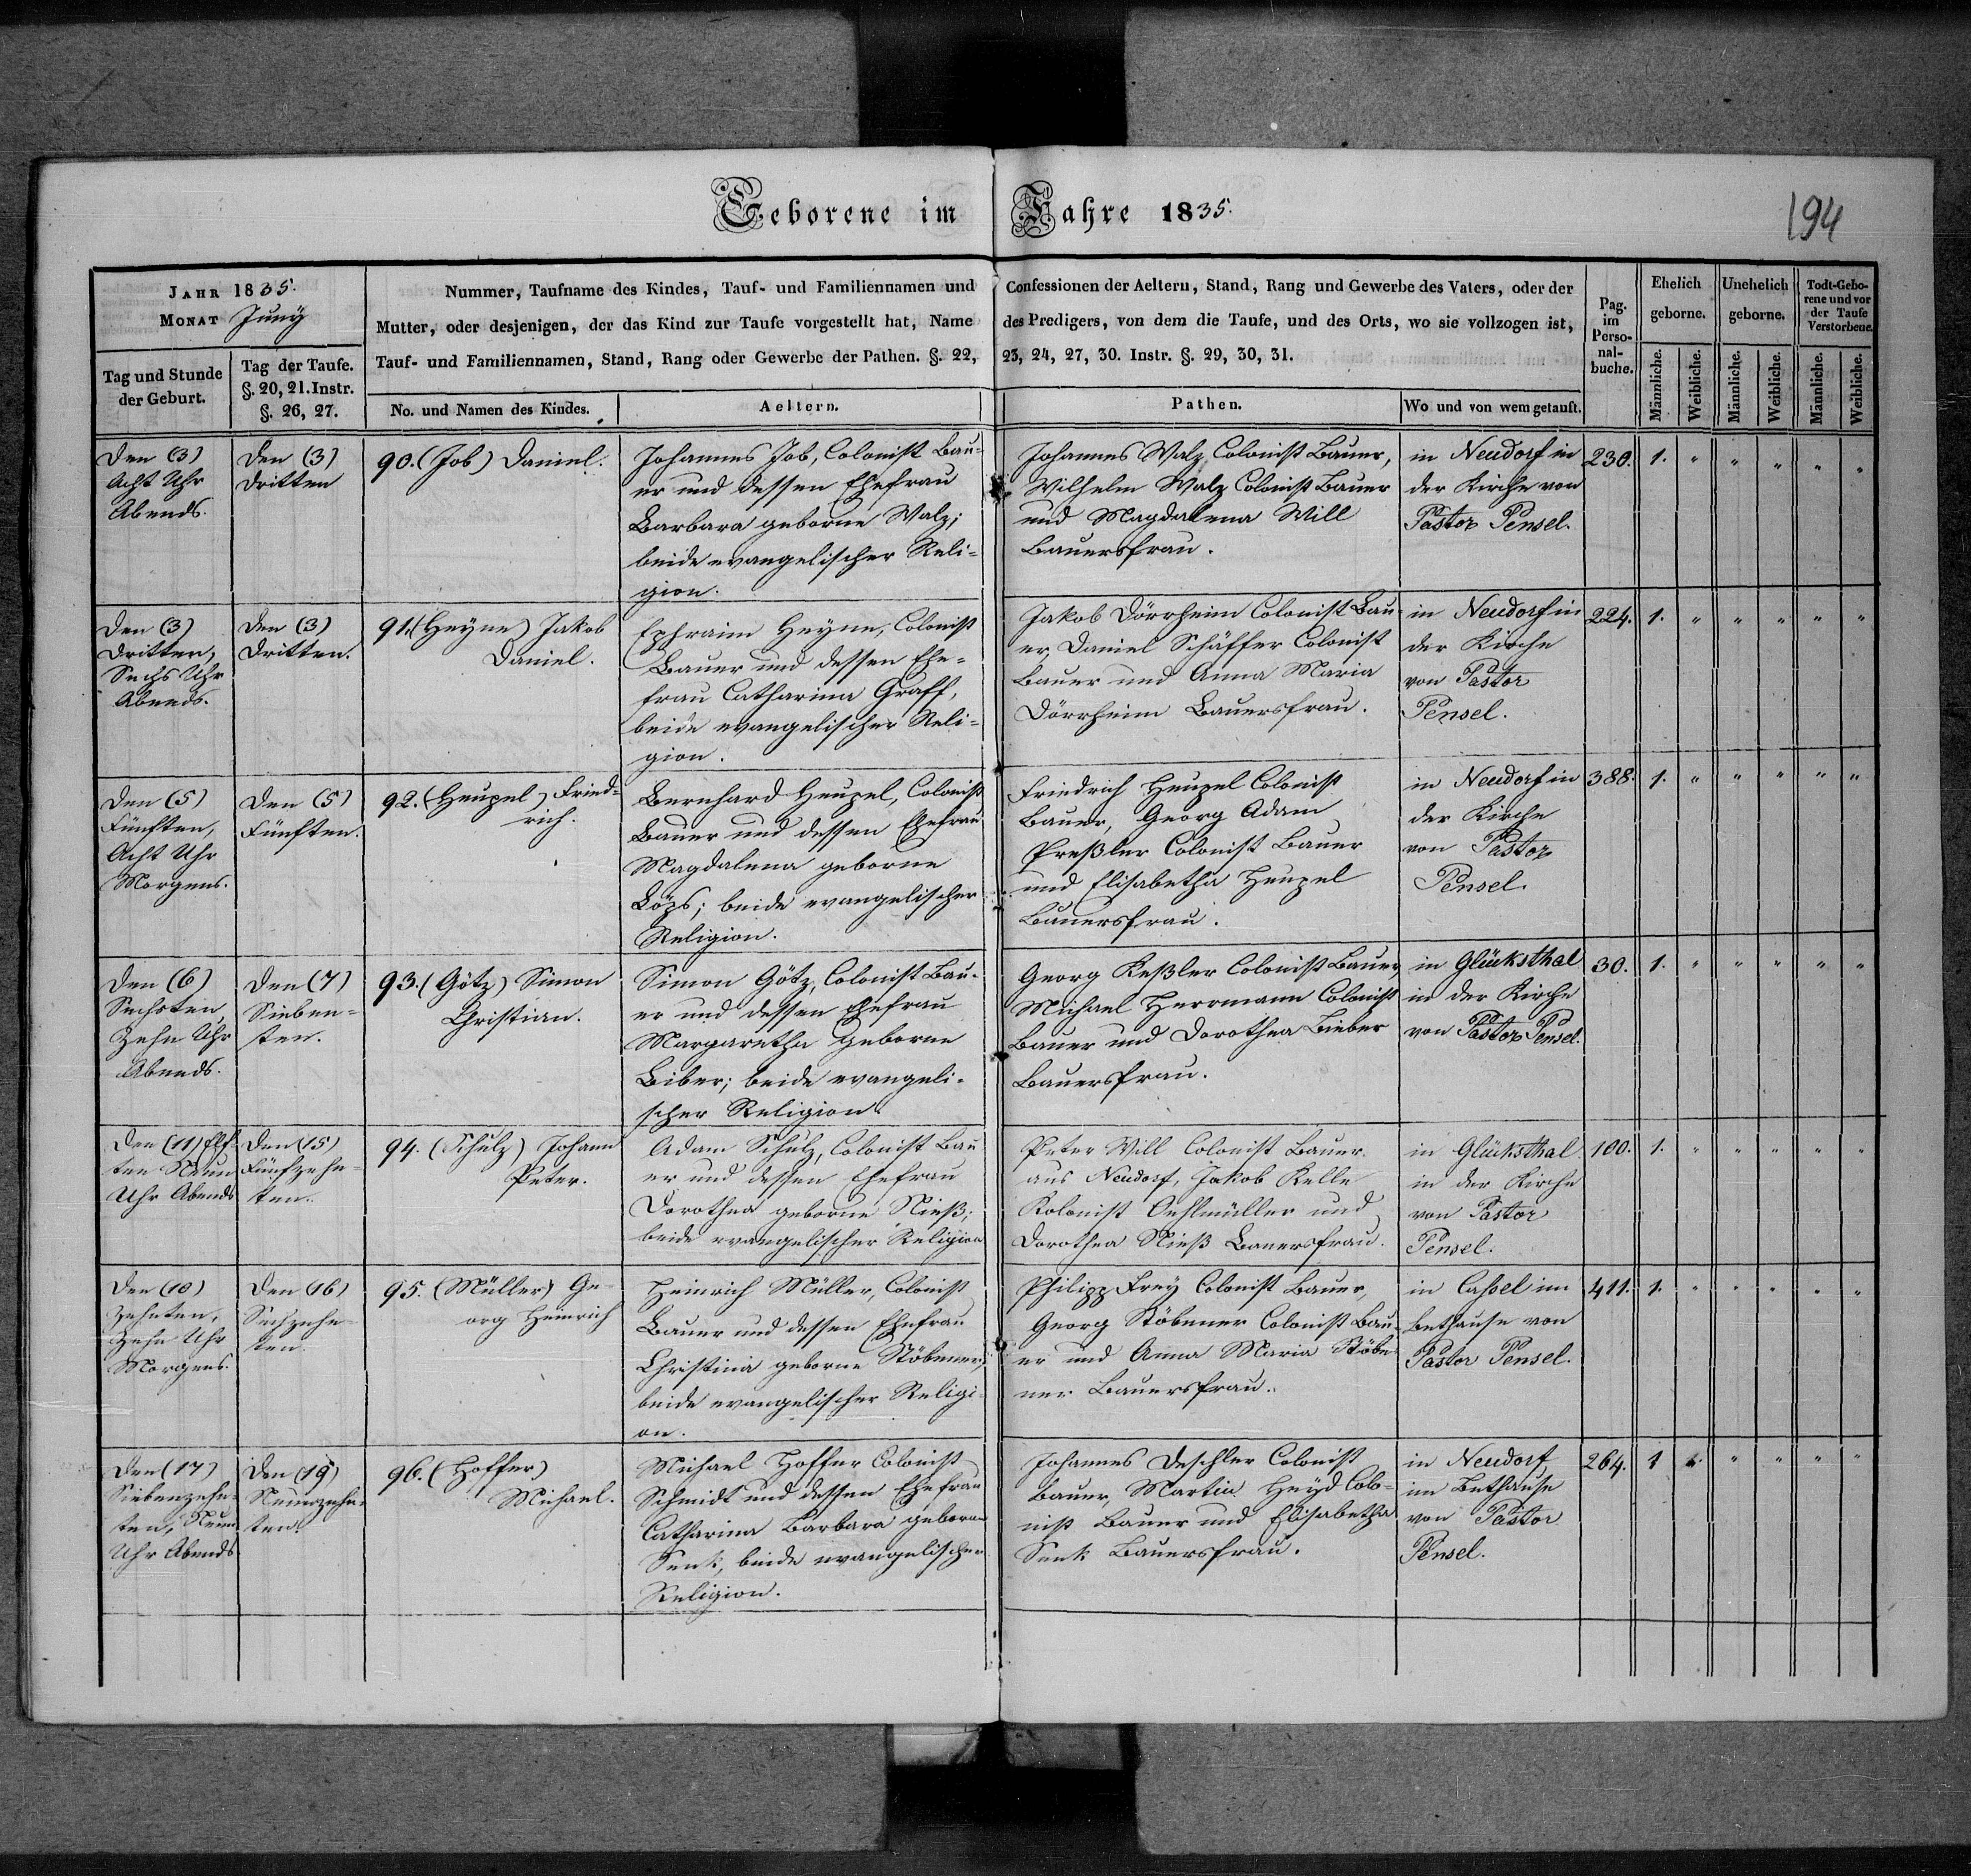 Geborene im Jahre 1835.
194
JAHR 1835.
MONAT Juny
Nummer, Taufname des Kindes, Tauf- und Familiennamen und Confessionen der Aeltern, Stand, Rang und Gewerbe des Vaters, oder der
Mutter, oder desjenigen, der das Kind zur Taufe vorgestellt hat, Name des Predigers, von dem die Taufe, und des Orts, wo sie vollzogen ist,
Tauf- und Familiennamen, Stand, Rang oder Gewerbe der Pathen. §. 22, 23, 24, 27, 30. Instr. §. 29, 30, 31.
Pag.
im
Perso-
nal-
buche.
Ehelich
geborne.
Unehelich
geborne.
Todt-Gebo-
rene und vor
der Taufe
Verstorbene.
Tag und Stunde
der Geburt.
Tag der Taufe.
§. 20, 21. Instr.
§. 26, 27.
No. und Namen des Kindes.
Aeltern.
Pathen.
Wo und von wem getauft.
Männliche.
Weibliche.
Männliche.
Weibliche.
Männliche.
Weibliche.
Den (3)
Acht Uhr
Abends.
Den (3)
Dritten
90. (Job) Daniel.
Johannes Job, Colonist Bau-
er und dessen Ehefrau
Barbara geborne Walz;
beide evangelischer Reli-
gion.
Johannes Walz Colonist Bauer,
Wilhelm Walz Colonist Bauer
und Magdalena Will
Bauersfrau.
in Neudorf in
der Kirche von
Pastor Pensel.
230. 1. " " " " "
Den (3)
Dritten,
Sechs Uhr
Abends.
Den (3)
Dritten.
91. (Heyne) Jakob
Daniel.
Ephraim Heyne, Colonist
Bauer und dessen Ehe-
frau Catharina Graff,
beide evangelischer Reli-
gion.
Jakob Dörrheim Colonist Bau-
er, Daniel Schäffer Colonist
Bauer und Anna Maria
Dörrheim Bauersfrau.
in Neudorf in
der Kirche
von Pastor
Pensel.
224. 1. " " " " "
Den (5)
Fünften,
Acht Uhr
Morgens.
Den (5)
Fünften.
92. (Heupel) Fried-
rich.
Bernhard Heupel, Colonist
Bauer und dessen Ehefrau
Magdalena geborne
beide evangelischer
Religion.
Friedrich Heupel Colonist
Bauer, Georg Adam
Preßler Colonist Bauer
und Elisabetha Heupel
Bauersfrau.
in Neudorf in
der Kirche
von Pastor
Pensel.
388. 1. " " " " "
Den (6)
Sechsten,
Zehn Uhr
Abends.
Den (7)
Sieben-
ten.
93. (Götz) Simon
Christian.
Simon Götz, Colonist Bau-
er und dessen Ehefrau
Margaretha geborne
Biber; beide evangeli-
scher Religion.
Georg Keßler Colonist Bauer
Michael Herrmann Colonist
Bauer und Dorothea Bieber
Bauersfrau.
in Glücksthal
in der Kirche
von Pastor Pensel.
30. 1. " " " " "
Den (11) Elf-
ten Neun
Uhr Abends
Den (15)
Fünfzehn-
ten.
94. (Schulz) Johann
Peter.
Adam Schulz, Colonist Bau
er und dessen Ehefrau
Dorothea geborne Nieß;
beide evangelischer Religion
Peter Will Colonist Bauer
aus Neudorf, Jakob Kelle
Kolonist Oehlmüller und
Dorothea Nieß Bauersfrau.
in Glücksthal
in der Kirche
von Pastor
Pensel.
100. 1. " " " " "
Den (10)
Zehnten,
Zehn Uhr
Morgens.
Den (16)
Sechzehn-
ten.
95. (Müller) Ge-
org Heinrich
Heinrich Müller, Colonist
Bauer und dessen Ehefrau
Christina geborne Stöbener,
beide evangelischer Religi-
on.
Philipp Frey Colonist Bauer,
Georg Stöbener Colonist Bau-
er und Anna Maria Stöbe-
ner Bauersfrau.
in Caßel im
Bethause von
Pastor Pensel.
411. 1. " " " " "
Den (17)
Siebenzehn-
ten, Neun
Uhr Abends
Den (19)
Neunzehn-
ten.
96. (Hoffer)
Michael.
Michael Hoffer Colonist
Schmidt und dessen Ehefrau
Catharina Barbara geborne
Senk, beide evangelischer
Religion.
Johannes Deschler Colonist
Bauer, Martin Heyd Colo-
nist Bauer und Elisabetha
Senk Bauersfrau.
in Neudorf
im Bethause
von Pastor
Pensel.
264. 1 " " " " "